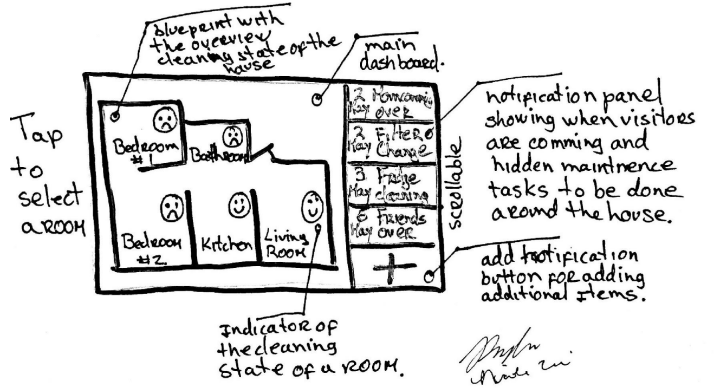 blueprint with
the overview
cleaning state of the
house
main
dashboard.
Tap
to
select
a ROOM
Bedroom
#1
Bathroom
Bedroom
#2
Kitchen
Living
Room
2 
May over
2 Filter
May Change
3 Fridge
May cleaning
6 Friends
May over
+
scrollable
notification panel
showing when visitors
are comming and
hidden maintnence
tasks to be done
around the house.
add notification
button for adding
additional items.
Indicator of
the cleaning
state of a ROOM.